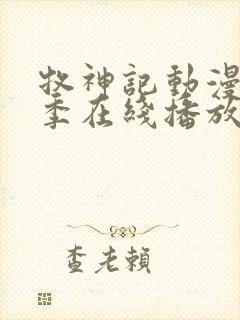 牧神記動漫
季在綫播放
查老賴